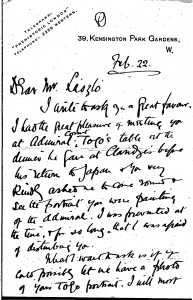 TELEGRAMS
TELEPHONE
39, KENSINGTON PARK GARDENS,
W.
Feb. 22.
Dear Mr. László
I write to ask you a great favour.
I had the great pleasure of meeting you
at Admiral Togo's table at the
dinner he gave at Claridge's before
his return to Japan & you very
kindly asked me to come round &
see the portrait you were painting
of the Admiral. I was prevented at
the time, & so long, that I was afraid
of disturbing you.
What I want to ask is if you
could possibly let me have a photo
of your Togo portrait. I will most